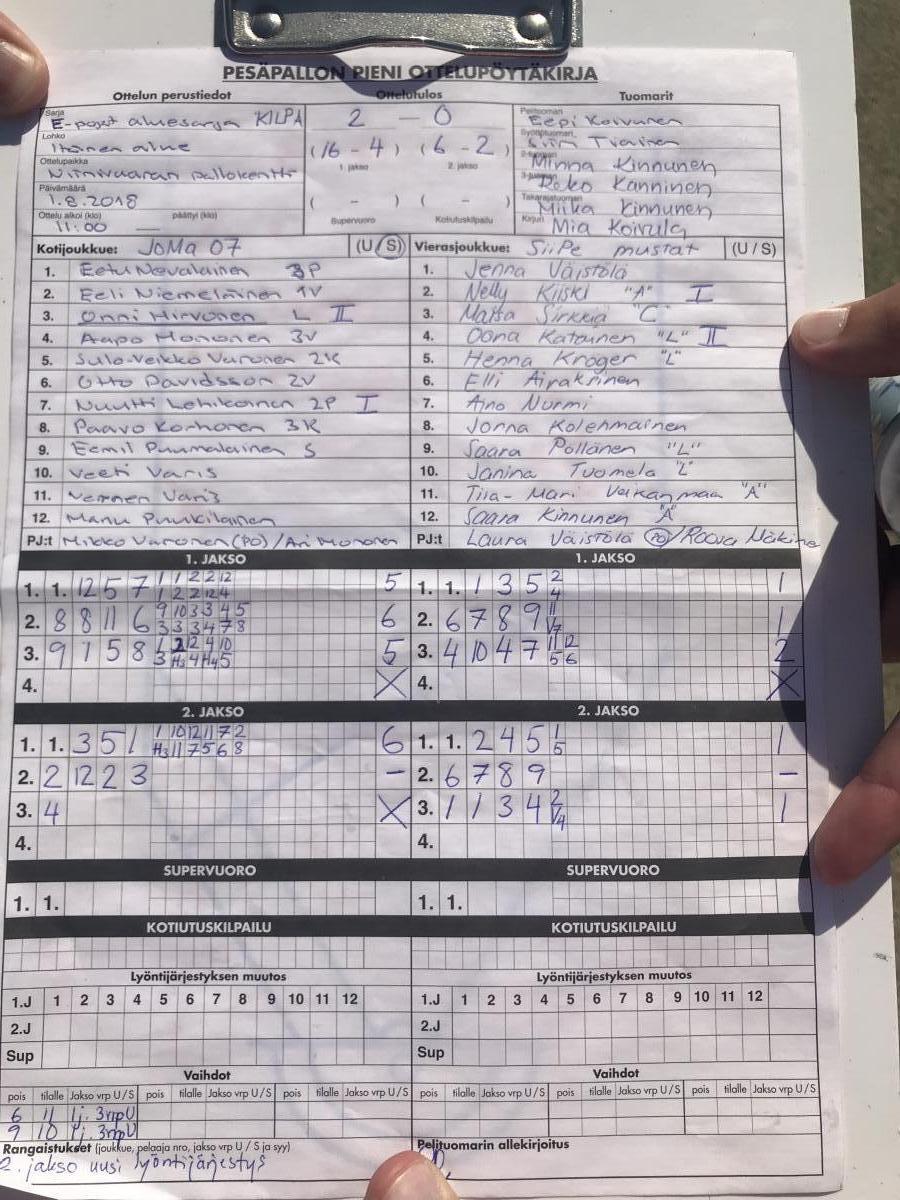 PESÄPALLON PIENI OTTELUPÖYTÄKIRJA
Ottelun perustiedot Ottelutulos Tuomarit
Sarja E-pojat aluesarja KILPA
Lohko Itäinen alue
Ottelupaikka Niinivaaran pallokenttä
Päivämäärä 1.8.2018
Ottelu alkoi (klo) päättyi (klo)
11:00
2 — 0
(16 - 4) (6 - 2)
1. jakso 2. jakso
( - ) ( - )
Supervuoro Kotiutuskilpailu
Pelituomari Eepi Koivunen
Syöttötuomari
2-tuomari Minna Kinnunen
3-tuomari Reko Kanninen
Takarajatuomari Miika Kinnunen
Kirjuri Mia Koivula
Kotijoukkue: JoMa 07 (U / S) Vierasjoukkue: SiiPe mustat (U / S)
1. Eetu Nevalainen 3P 1. Jenna Väistölä
2. Eeli Niemeläinen 1V 2. Nelly Kiiski "A" I
3. Onni Hirvonen L II 3. Matta Sirkkiä "C"
4. Aapo Mononen 3V 4. Oona Katainen "L" II
5. Sulo-Veikko Varonen 2K 5. Henna Kröger "L"
6. Otto Davidsson 2V 6. Elli Airaksinen
7. Nuutti Lehikoinen 2P I 7. Aino Nurmi
8. Paavo Korhonen 3K 8. Jonna Kolehmainen
9. Eemil Puumalainen S 9. Saara Pöllänen "L"
10. Veeti Varis 10. Janina Tuomela "L"
11. Varis 11. Tiia-Mari "A"
12. Manu 12. Saara Kinnunen "A"
PJ:t Mikko Varonen (PO) / Ari Mononen PJ:t Laura Väistölä (PO) / Roosa
1. JAKSO 1. JAKSO
1. 1. 12 5 7 1 1 2 2 12 5 1. 1. 1 3 5 2 1
1 2 2 12 4 4
2. 8 8 11 6 9 10 3 3 4 5 6 2. 6 7 8 9 11 1
3 3 3 4 7 8 V7
3. 9 1 5 8 1 2 12 4 10 5 3. 4 10 4 7 11 12 2
3 H3 4 H4 5 5 6
4. X 4. X
2. JAKSO 2. JAKSO
1. 1. 3 5 1 1 10 12 11 7 2 6 1. 1. 2 4 5 1 1
H3 11 7 5 6 8 5
2. 2 12 2 3 – 2. 6 7 8 9 –
3. 4 X 3. 1 1 3 4 2 1
V4
4. 4.
SUPERVUORO SUPERVUORO
1. 1. 1. 1.
KOTIUTUSKILPAILU KOTIUTUSKILPAILU
Lyöntijärjestyksen muutos Lyöntijärjestyksen muutos
1.J 1 2 3 4 5 6 7 8 9 10 11 12 1.J 1 2 3 4 5 6 7 8 9 10 11 12
2.J 2.J
Sup Sup
Vaihdot Vaihdot
pois tilalle Jakso vrp U/S pois tilalle Jakso vrp U/S pois tilalle Jakso vrp U/S pois tilalle Jakso vrp U/S pois tilalle Jakso vrp U/S pois tilalle Jakso vrp U/S
6 11 1j. 3vrpU
9 10 1j. 3vrpU
Rangaistukset (joukkue, pelaaja nro, jakso vrp U / S ja syy) Pelituomarin allekirjoitus
2. jakso uusi lyöntijärjestys